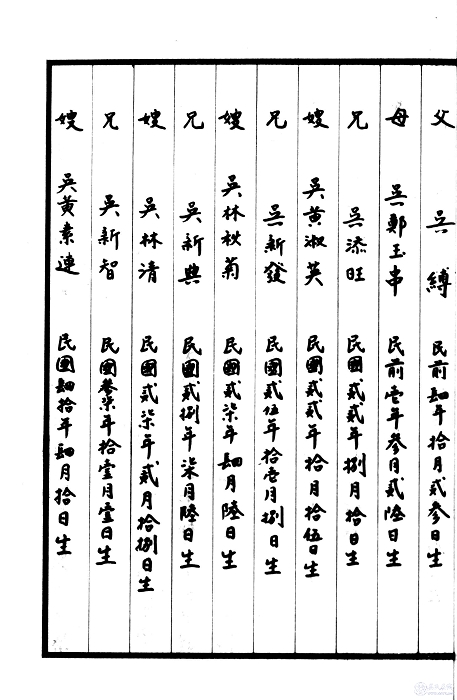 父 吳縛 民前肆年拾月貳參日生
母 吳鄭玉串 民前壹年參月貳陸日生
兄 吳添旺 民國貳貳年捌月拾日生
嫂 吳黃淑英 民國貳貳年拾月拾伍日生
兄 吳新發 民國貳伍年拾壹月捌日生
嫂 吳林秋菊 民國貳柒年肆月陸日生
兄 吳新興 民國貳捌年柒月陸日生
嫂 吳林清 民國貳柒年貳月拾捌日生
兄 吳新智 民國參柒年拾壹月壹日生
嫂 吳黃素連 民國肆拾年肆月拾日生